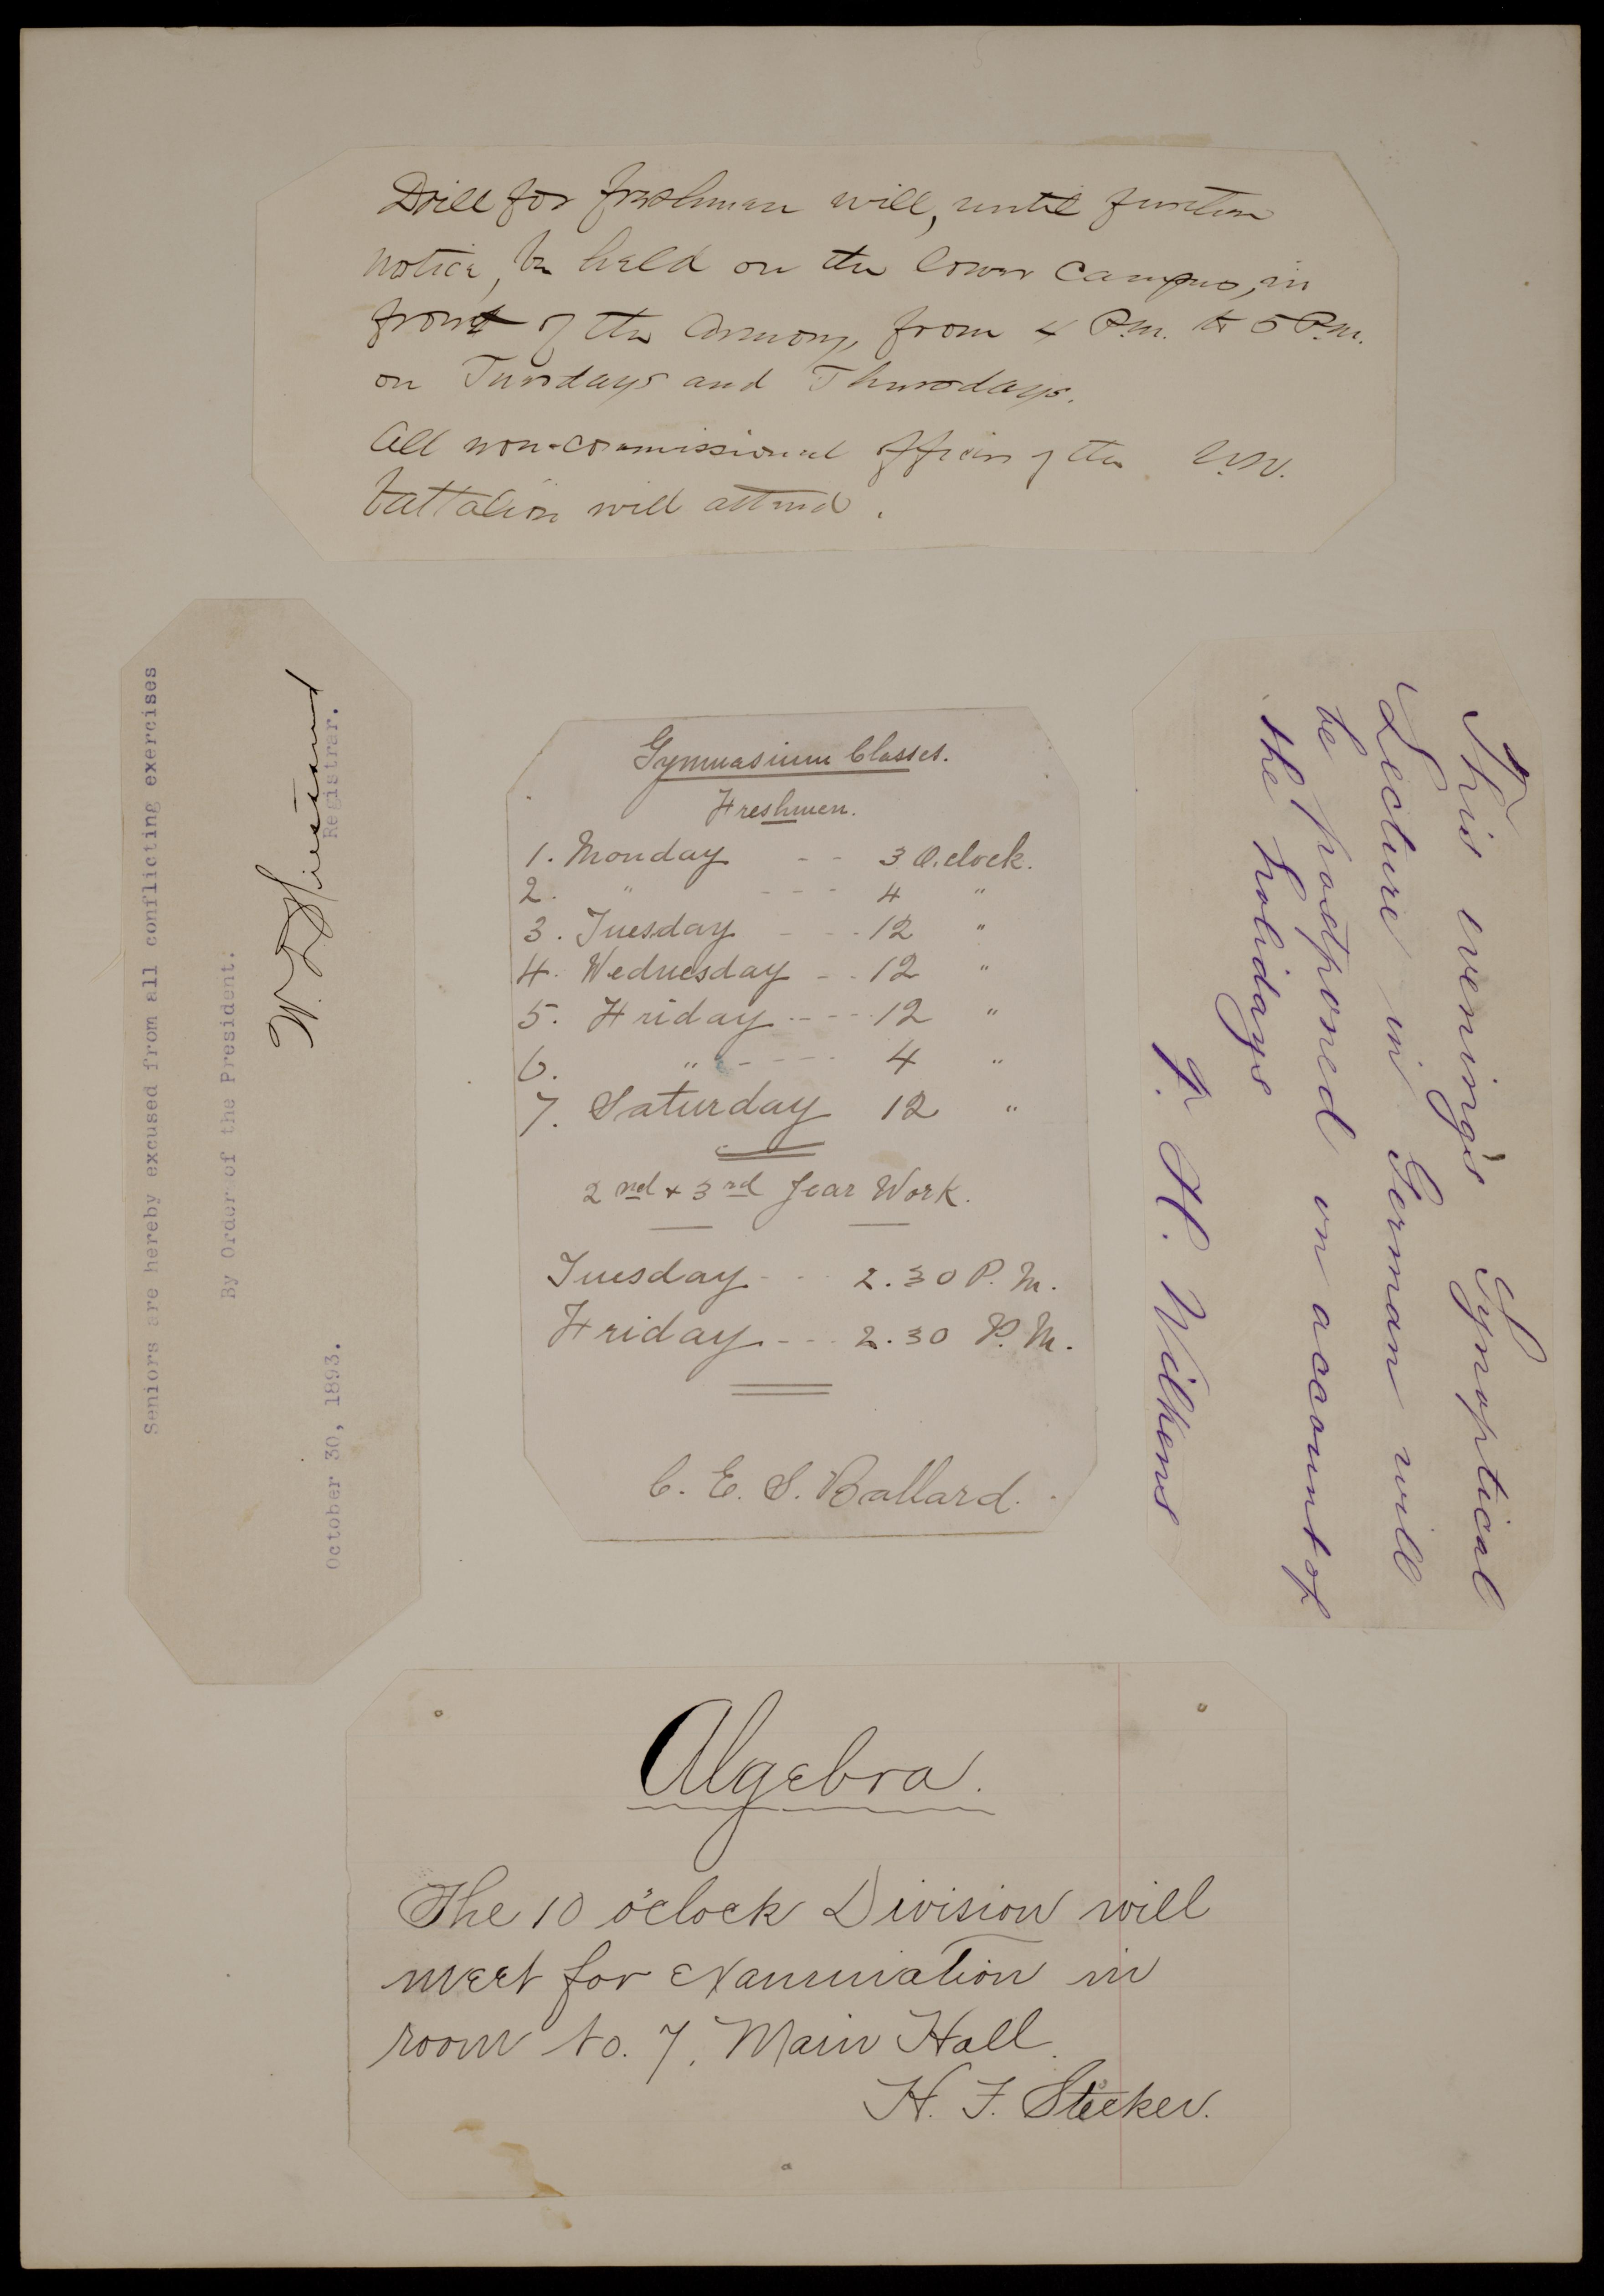 Drill for freshmen will, until further
notice, be held on the lower campus, in
front of the Armory, from 4 P.m. to 5 P.m.
on Tuesdays and Thursdays.
All non-commissioned officers of the U.W.
battalion will attend.
Seniors are hereby excused from all conflicting exercises
By Order of the President:
W. D. Hiestand
Registrar.
October 30, 1893.
Gymnasium Classes.
Freshmen.
1. Monday - - 3 O.clock.
2. " - - - 4 "
3. Tuesday - - - 12 "
4. Wednesday - - 12 "
5. Friday - - - - 12 "
6. " - - - - 4 "
7. Saturday 12 "
2nd + 3rd Year Work.
Tuesday - - - 2.30 P. M.
Friday - - - 2.30 P. M.
C. E. S. Ballard.
This evening's Synoptical
Lecture in German will
be postponed on account of
the holidays
F. H. Wilkens
Algebra.
The 10 o'clock Division will
meet for examination in
room No. 7, Main Hall.
H. F. Stecker.